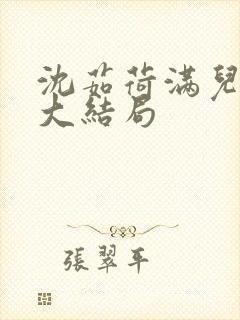 沈茹荷满兒
大結局
張翠平